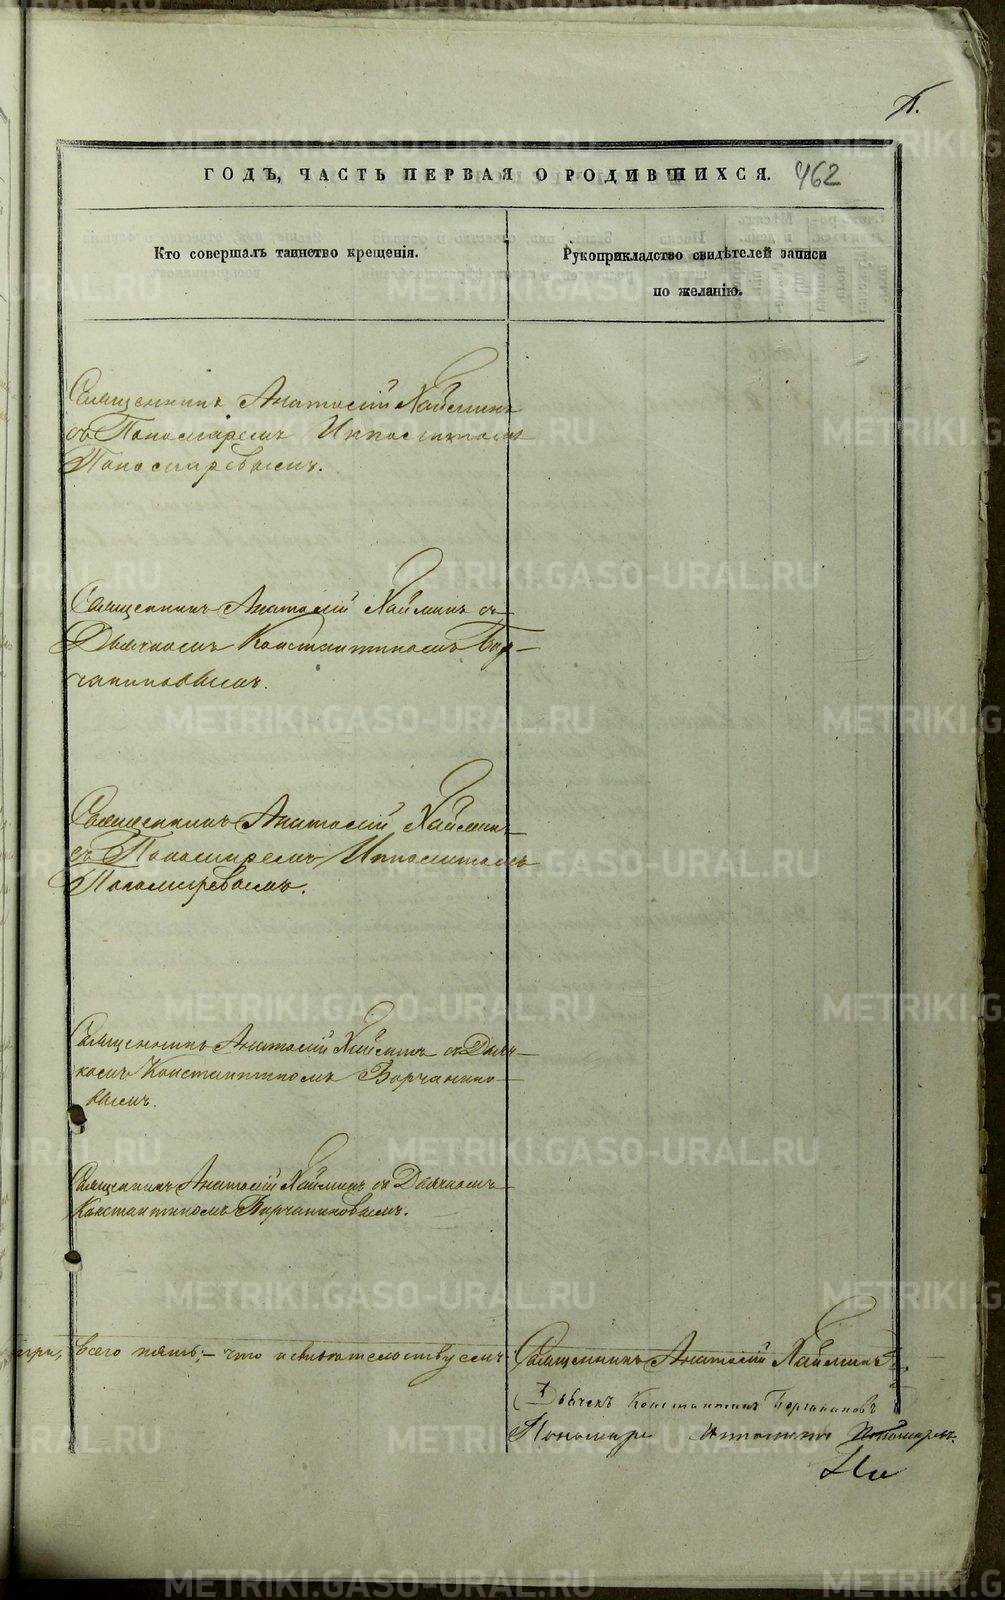 Л.
ГОДЪ, ЧАСТЬ ПЕРВАЯ О РОДИВШИХСЯ. 462
Кто совершалъ таинство крещенія.
Рукоприкладство свидѣтелей записи
по желанію.
Священникъ Анатолій Хайминъ
съ Пономаремъ Ипполитомъ
Пономаревымъ.
Священникъ Анатолій Хайминъ съ
Дьячкомъ Константиномъ Бор-
чаниновымъ.
Священникъ Анатолій Хайминъ
съ Пономаремъ Ипполитомъ
Пономаревымъ.
Священникъ Анатолій Хайминъ съ Дьяч-
комъ Константиномъ Борчанино-
вымъ.
Священникъ Анатолій Хайминъ съ Дьячкомъ
Константиномъ Борчаниновымъ.
три, всего пять; – что и свидѣтельствуемъ
Священникъ Анатолій Хайминъ.
Дьячекъ Константинъ Борчаниновъ
Пономарь Ипполитъ Пономарев.
METRIKI.GASO-URAL.RU